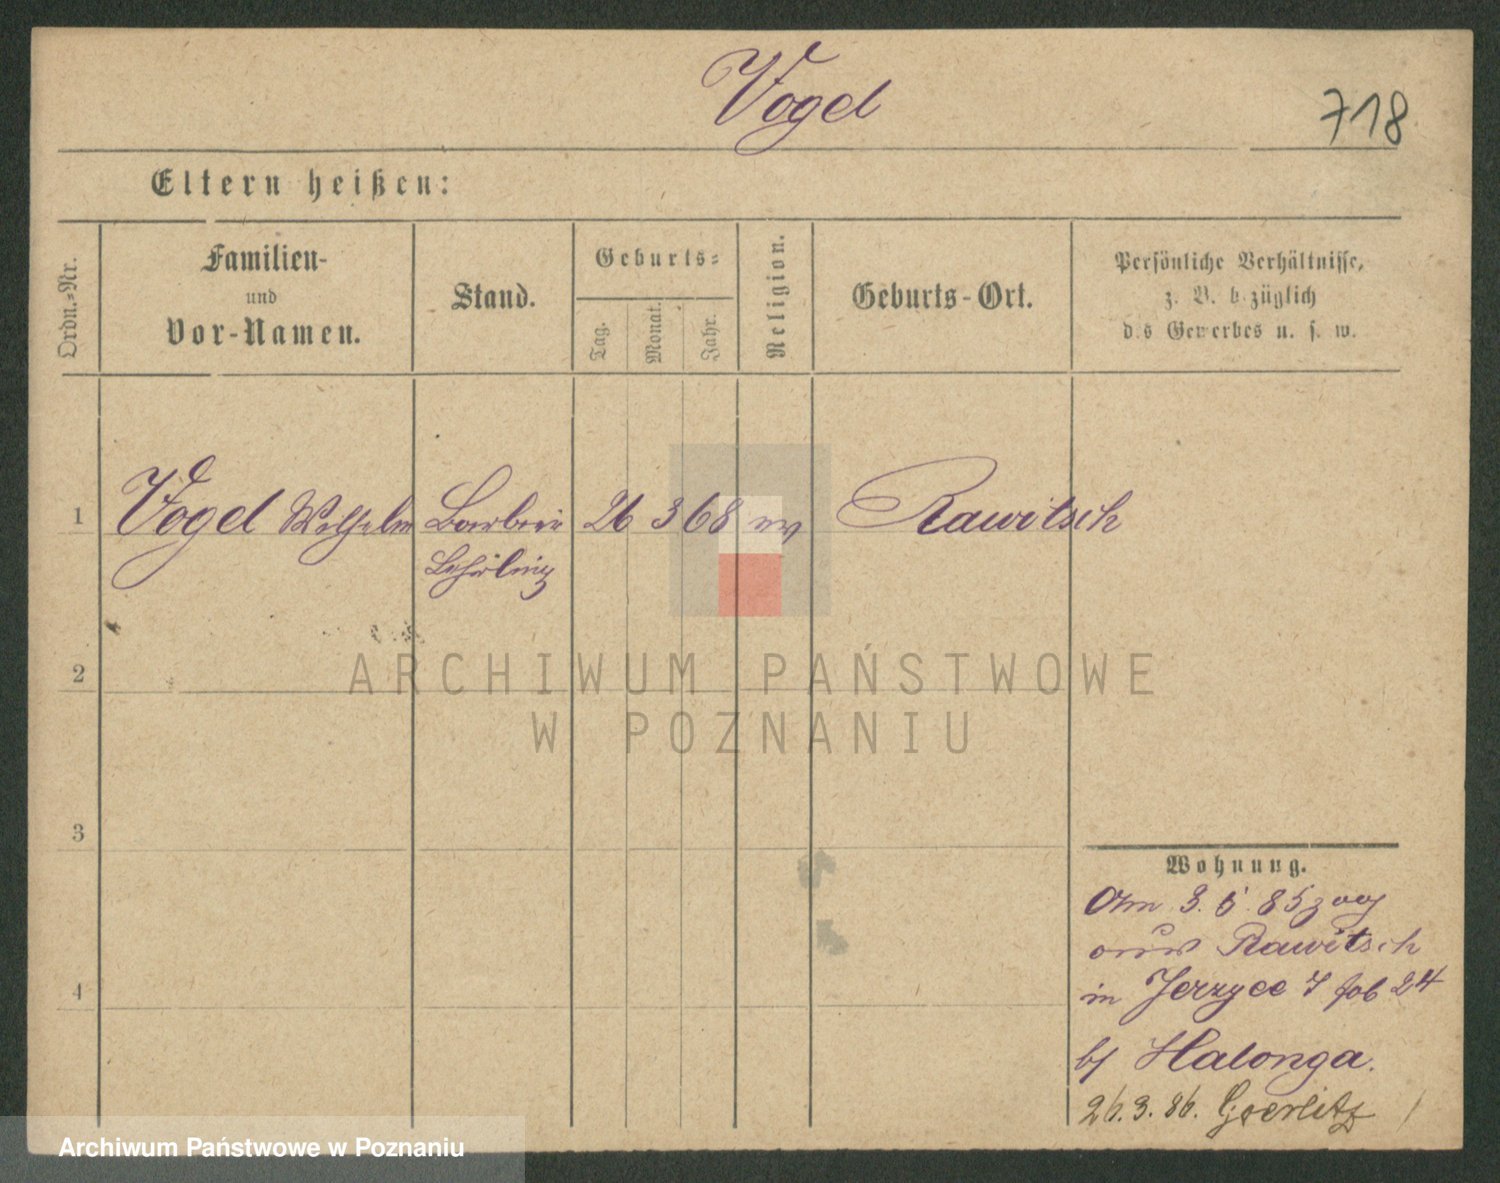 Vogel
718
Eltern heißen:
Ordn.-Nr.
Familien-
und
Vor-Namen.
Stand.
Geburts-
Tag.
Monat.
Jahr.
Religion.
Geburts-Ort.
Persönliche Verhältnisse,
z. B. bezüglich
des Gewerbes u. s. w.
1 Vogel Wilhelm Barbier 26 3 68 ev Rawitsch
Lehrling
2
ARCHIWUM PAŃSTWOWE
W POZNANIU
3
4
Wohnung.
Am 3. 5. 85 zog
aus Rawitsch
in Jerzyce 24
bj Halonga.
26.3.86. Goerlitz
Archiwum Państwowe w Poznaniu